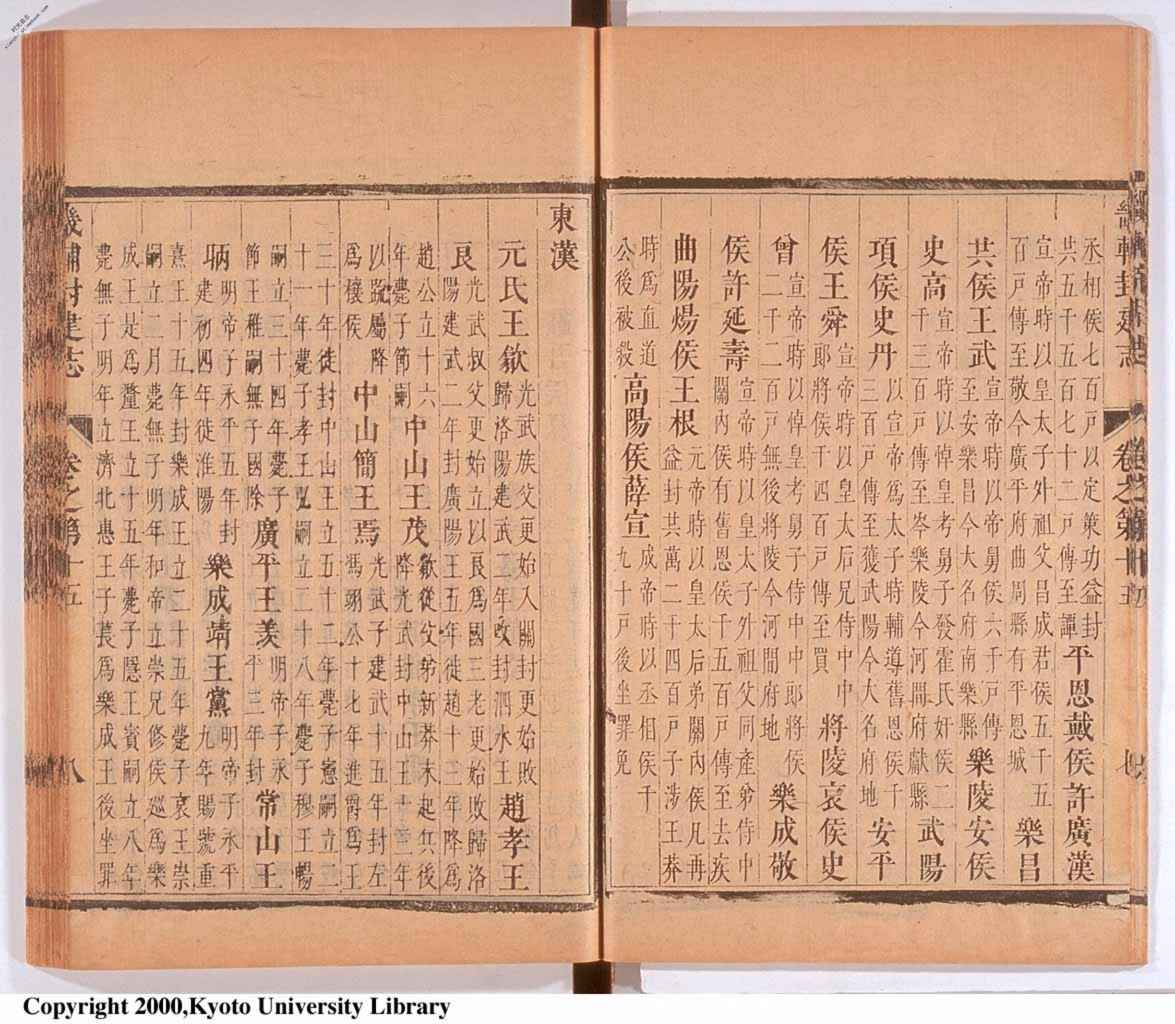 丞相侯七百戶以定策功益封共五千五百七十二戶傳至譚 平恩戴侯許廣漢
宣帝時以皇太子外祖父昌成君侯五千五百戶傳至敬今廣平府曲周縣有平恩城 樂昌
共侯王武 宣帝時以帝舅侯六千戶傳至安樂昌今大名府南樂縣 樂陵安侯
史高 宣帝時以悼皇考舅子發霍氏奸侯二千三百戶傳至岑樂陵今河間府獻縣 武陽
項侯史丹 以宣帝爲太子時輔導舊恩侯千三百戶傳至獲武陽今大名府地 安平
侯王舜 宣帝時以皇太后兄侍中中郎將侯千四百戶傳至買 將陵哀侯史
曾 宣帝時以悼皇考舅子侍中中郎將侯二千二百戶無後將陵今河間府地 樂成敬
侯許延壽 宣帝時以皇太子外祖父同產弟侍中關內侯有舊恩侯千五百戶傳至去疾
曲陽煬侯王根 元帝時以皇太后弟關內侯凡再益封共萬二千四百戶子涉王莽
時爲直道公後被殺 高陽侯薛宣 成帝時以丞相侯千九十戶後坐罪免
東漢
元氏王歙 光武族父更始入關封更始敗歸洛陽建武二年改封泗水王 趙孝王
良 光武叔父更始立以良爲國三老更始敗歸洛陽建武二年封廣陽王五年徙趙十三年降爲
趙公立十六年薨子節嗣 中山王茂 歙從父弟新莽末起兵後降光武封中山王十三年
以疏屬降爲穰侯 中山簡王焉 光武子建武十五年封左馮翊公十七年進爵爲王
三十年徙封中山王立五十二年薨子憲嗣立二十一年薨子孝王弘嗣立二十八年薨子穆王暢
嗣立三十四年薨子節王稚嗣無子國除 廣平王羨 明帝子永平三年封 常山王
昞 明帝子永平五年封建初四年徙淮陽 樂成靖王黨 明帝子永平九年賜號重
熹王十五年封樂成王立二十五年薨子哀王崇嗣立二月薨無子明年和帝立崇兄修侯巡爲樂
成王是爲釐王立十五年薨子隱王賓嗣立八年薨無子明年立濟北惠王子萇爲樂成王後坐罪
畿輔封建志 卷之第十五 八
Copyright 2000,Kyoto University Library